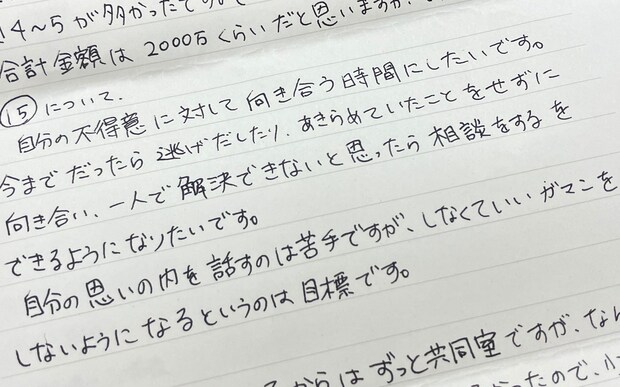 14〜5が多かったで
合計金額は2000万くらいだと思いますが、
⑮について、
自分の不得意に対して向き合う時間にしたいです。
今までだったら逃げだしたり、あきらめていたことをせずに
向き合い、一人で解決できないと思ったら相談をするを
できるようになりたいです。
自分の思いの内を話すのは苦手ですが、しなくていいガマンを
しないようになるというのは目標です。
からはずっと共同室ですが、なん
ったので、